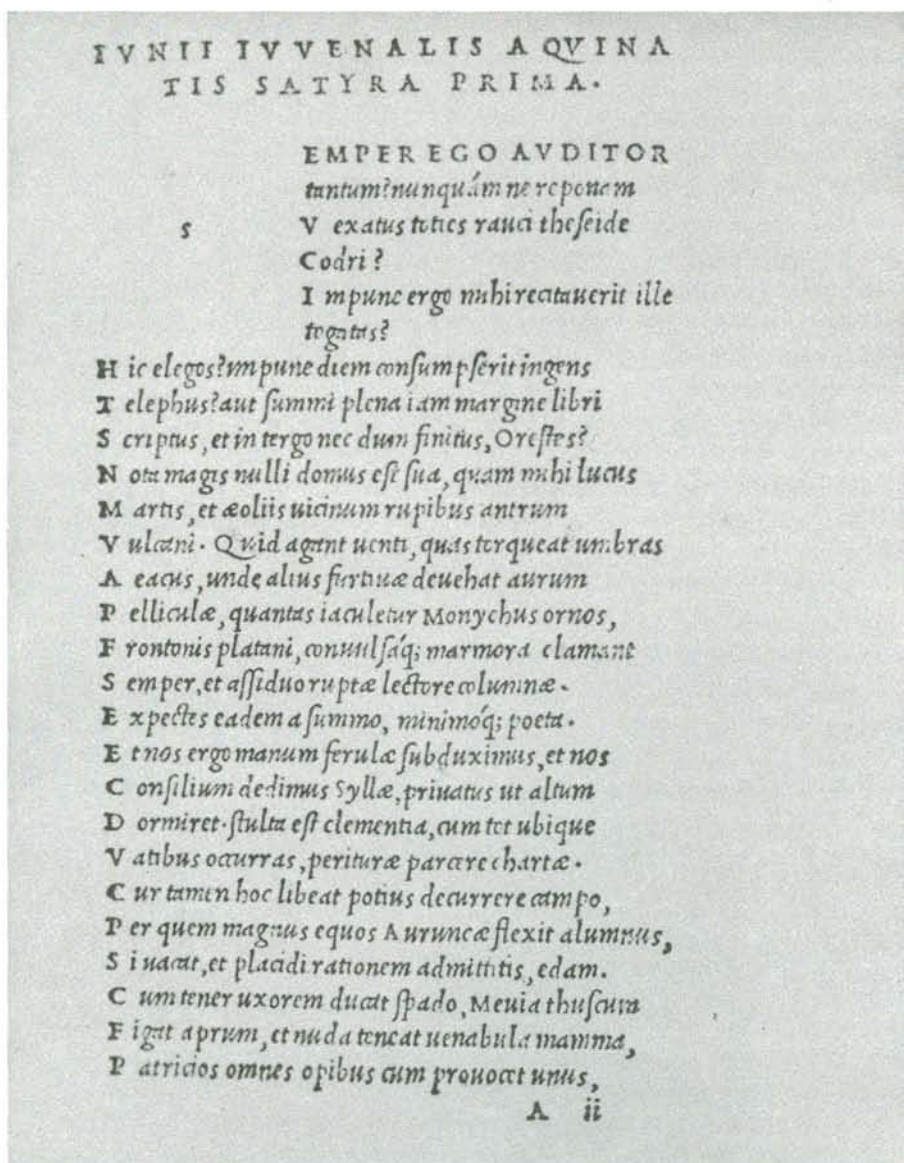 IVNII IVVENALIS AQVINA
TIS SATYRA PRIMA.
EMPER EGO AVDITOR
tantum?nunquám ne reponam
s
V exatus toties rauci theseide
Codri?
I mpune ergo mihi recitauerit ille
togatas?
H ic elegos?impune diem consumpserit ingens
T elephus?aut summi plena iam margine libri
S criptus, et in tergo nec dum finitus, Orestes?
N ota magis nulli domus est sua, quam mihi lucus
M artis, et æoliis uicinum rupibus antrum
V ulcani. Quid agant uenti, quas torqueat umbras
A eacus, unde alius furtiuæ deuehat aurum
P elliculæ, quantas iaculetur Monychus ornos,
F rontonis platani, conuulsáq; marmora clamant
S emper, et assiduo ruptæ lectore columnæ.
E xpectes eadem a summo, minimóq; poeta.
E t nos ergo manum ferulæ subduximus, et nos
C onsilium dedimus Syllæ, priuatus ut altum
D ormiret. stulta est clementia, cum tot ubique
V atibus occurras, perituræ parcere chartæ.
C ur tamen hoc libeat potius decurrere campo,
P er quem magnus equos Auruncæ flexit alumnus,
S i uacat, et placidi rationem admittitis, edam.
C um tener uxorem ducat spado, Meuia thuscum
F igat aprum, et nuda teneat uenabula mamma,
P atricios omnes opibus cum prouocet unus,
A ii